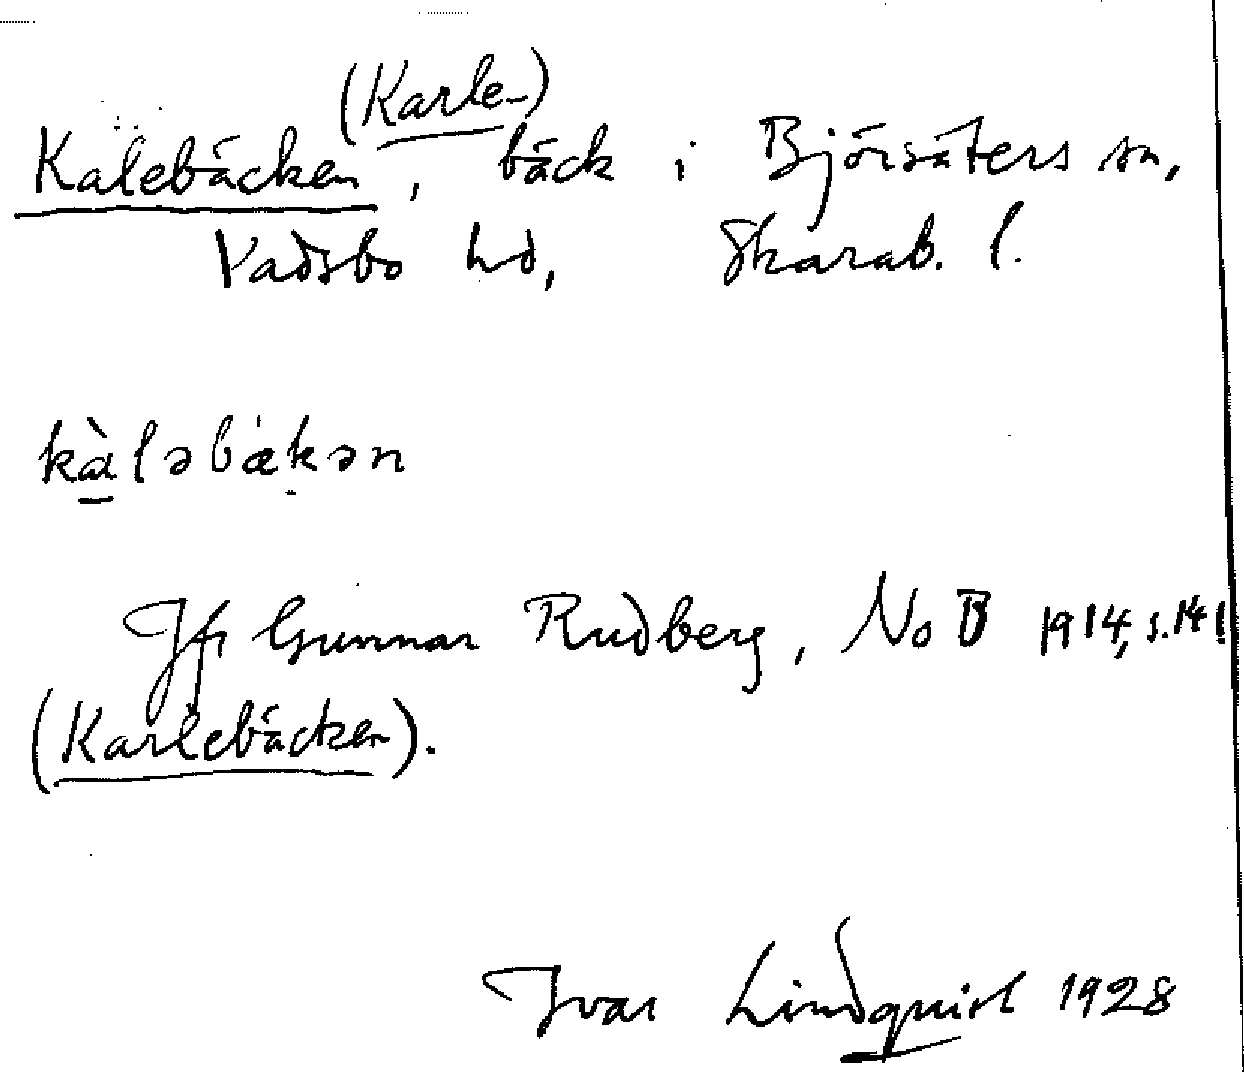 (Karle-)
Kalebäcken, bäck i Björsäters sn,
Vadsbo hd, Skarab. l.
kàləbækən
Jfr Gunnar Rudberg, NoB 1914, s. 141
(Karlebäcken).
Ivar Lindquist 1928